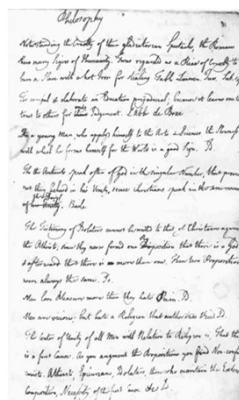 Philosophy
Notwithstanding the Cruelty of the gladiatorian Spectacles, the Romans
have many Signs of Humanity. Twas regarded as a Piece of Cruelty to
burn a Slave with a hot Iron for stealing Table Linnen.
too compact &
tions to others for their Judgement. L'Abbé du Bos
In a young Man, who applys himself to the Arts & Sciences the Slowness
with which he forms himself for the World is a good Sign. D.
If the Antients speak often of God in the singular Number, that proves
not they believd in his Unity, since Christians speak in the same manner
of the Devil. Baile
The Testimony of Idolaters cannot be united to that of Christians against
the Atheists, since they never found one Proposition that there is a God
& afterward that there is no more than one. These two Propositions
were always the same. Do.
Men love Pleasure more than they hate Pain. D.
Men are vicious but hate a Religion that authorises Vice. D.
is a first cause. As you augment the Propositions you find Non-confor
mists. Atheists, Epicureans, Idolaters, those who maintain the Extension
Composition, Necessity of the first Cause &c